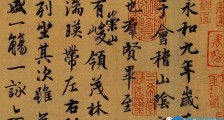 永和九年歲
于會稽山陰
也羣賢畢至
崇山
有峻領茂林
湍暎帶左右
列坐其次雖
盛一觴一詠